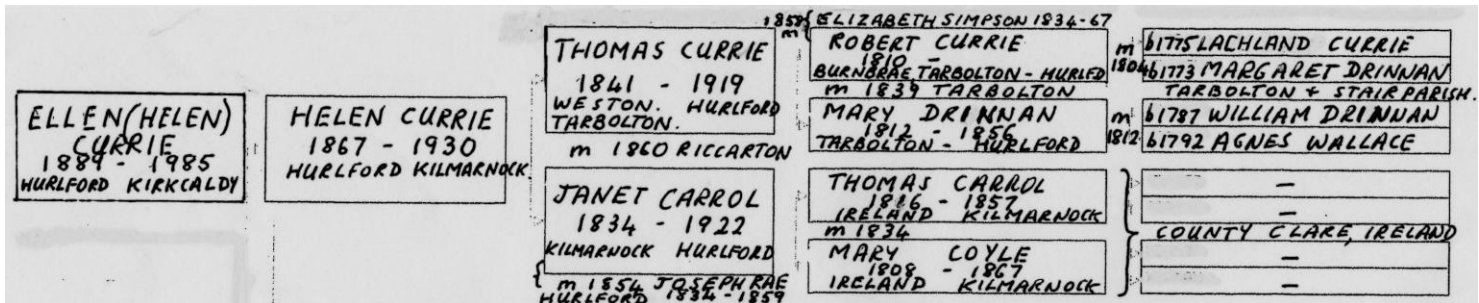 ELLEN (HELEN)
CURRIE
1889 - 1985
HURLFORD KIRKCALDY
HELEN CURRIE
1867 - 1930
HURLFORD KILMARNOCK
THOMAS CURRIE
1841 - 1919
WESTON. HURLFORD
TARBOLTON.
m 1860 RICCARTON
JANET CARROL
1834 - 1922
KILMARNOCK HURLFORD
m 1854 JOSEPH RAE
HURLFORD 1834-1859
1858 m { ELIZABETH SIMPSON 1834-67
ROBERT CURRIE
1810 -
BURNBRAE, TARBOLTON - HURLFD
m 1839 TARBOLTON
MARY DRINNAN
1812 - 1856
TARBOLTON - HURLFORD
THOMAS CARROL
1816 - 1857
IRELAND KILMARNOCK
m 1834
MARY COYLE
1808 - 1867
IRELAND KILMARNOCK
m 1804
b1775 LACHLAND CURRIE
b1773 MARGARET DRINNAN
TARBOLTON & STAIR PARISH.
m 1812
b1787 WILLIAM DRINNAN
b1792 AGNES WALLACE
-
-
COUNTY CLARE, IRELAND
-
-